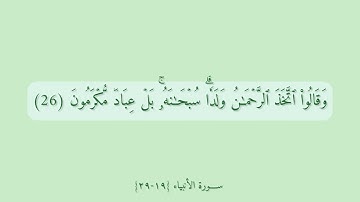 وَقَالُوا۟ ٱتَّخَذَ ٱلرَّحْمَـٰنُ وَلَدًۭا ۗ سُبْحَـٰنَهُۥ ۚ بَلْ عِبَادٌۭ مُّكْرَمُونَ (26)
سورة الأنبياء {١٩-٢٩}